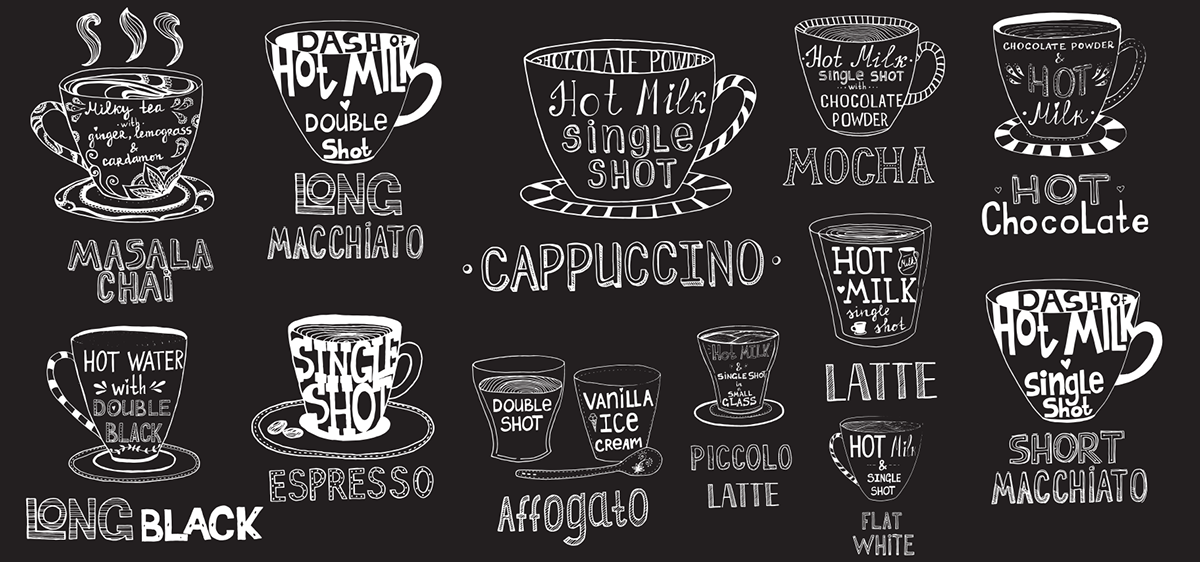 Milky tea
with
ginger, lemograss
&
cardamon
MASALA
CHAI
DASH OF
HOT MILK
DOUBLE
Shot
LONG
MACCHIATO
CHOCOLATE POWDER
Hot Milk
Single
SHOT
CAPPUCCINO
Hot Milk
SINGLE SHOT
with
CHOCOLATE
POWDER
MOCHA
CHOCOLATE POWDER
&
HOT
Milk
HOT
Chocolate
HOT WATER
with
DOUBLE
BLACK
LONG BLACK
SINGLE
SHOT
ESPRESSO
DOUBLE
SHOT
VANILLA
ICE
CREAM
Affogato
Hot MILK
&
SINGLE SHOT
in
SMALL
GLASS
PICCOLO
LATTE
HOT
Milk
MILK
single
shot
LATTE
HOT Milk
&
SINGLE
SHOT
FLAT
WHITE
DASH OF
HOT MILK
Single
Shot
SHORT
MACCHIATO